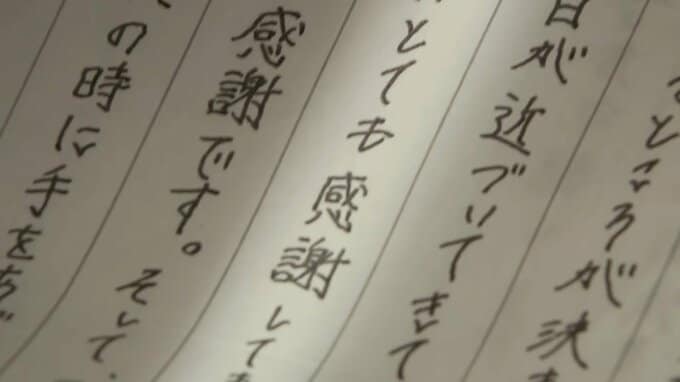 ところが決
日が近づいてきて
とても感謝して
感謝です。そして、
の時に手を